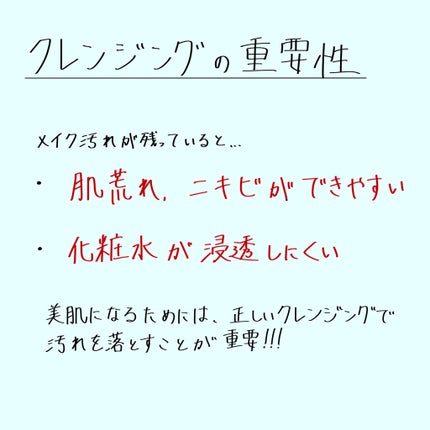 クレンジングの重要性
メイク汚れが残っていると...
・ 肌荒れ、ニキビができやすい
・ 化粧水が浸透しにくい
美肌になるためには、正しいクレンジングで
汚れを落とすことが重要!!!